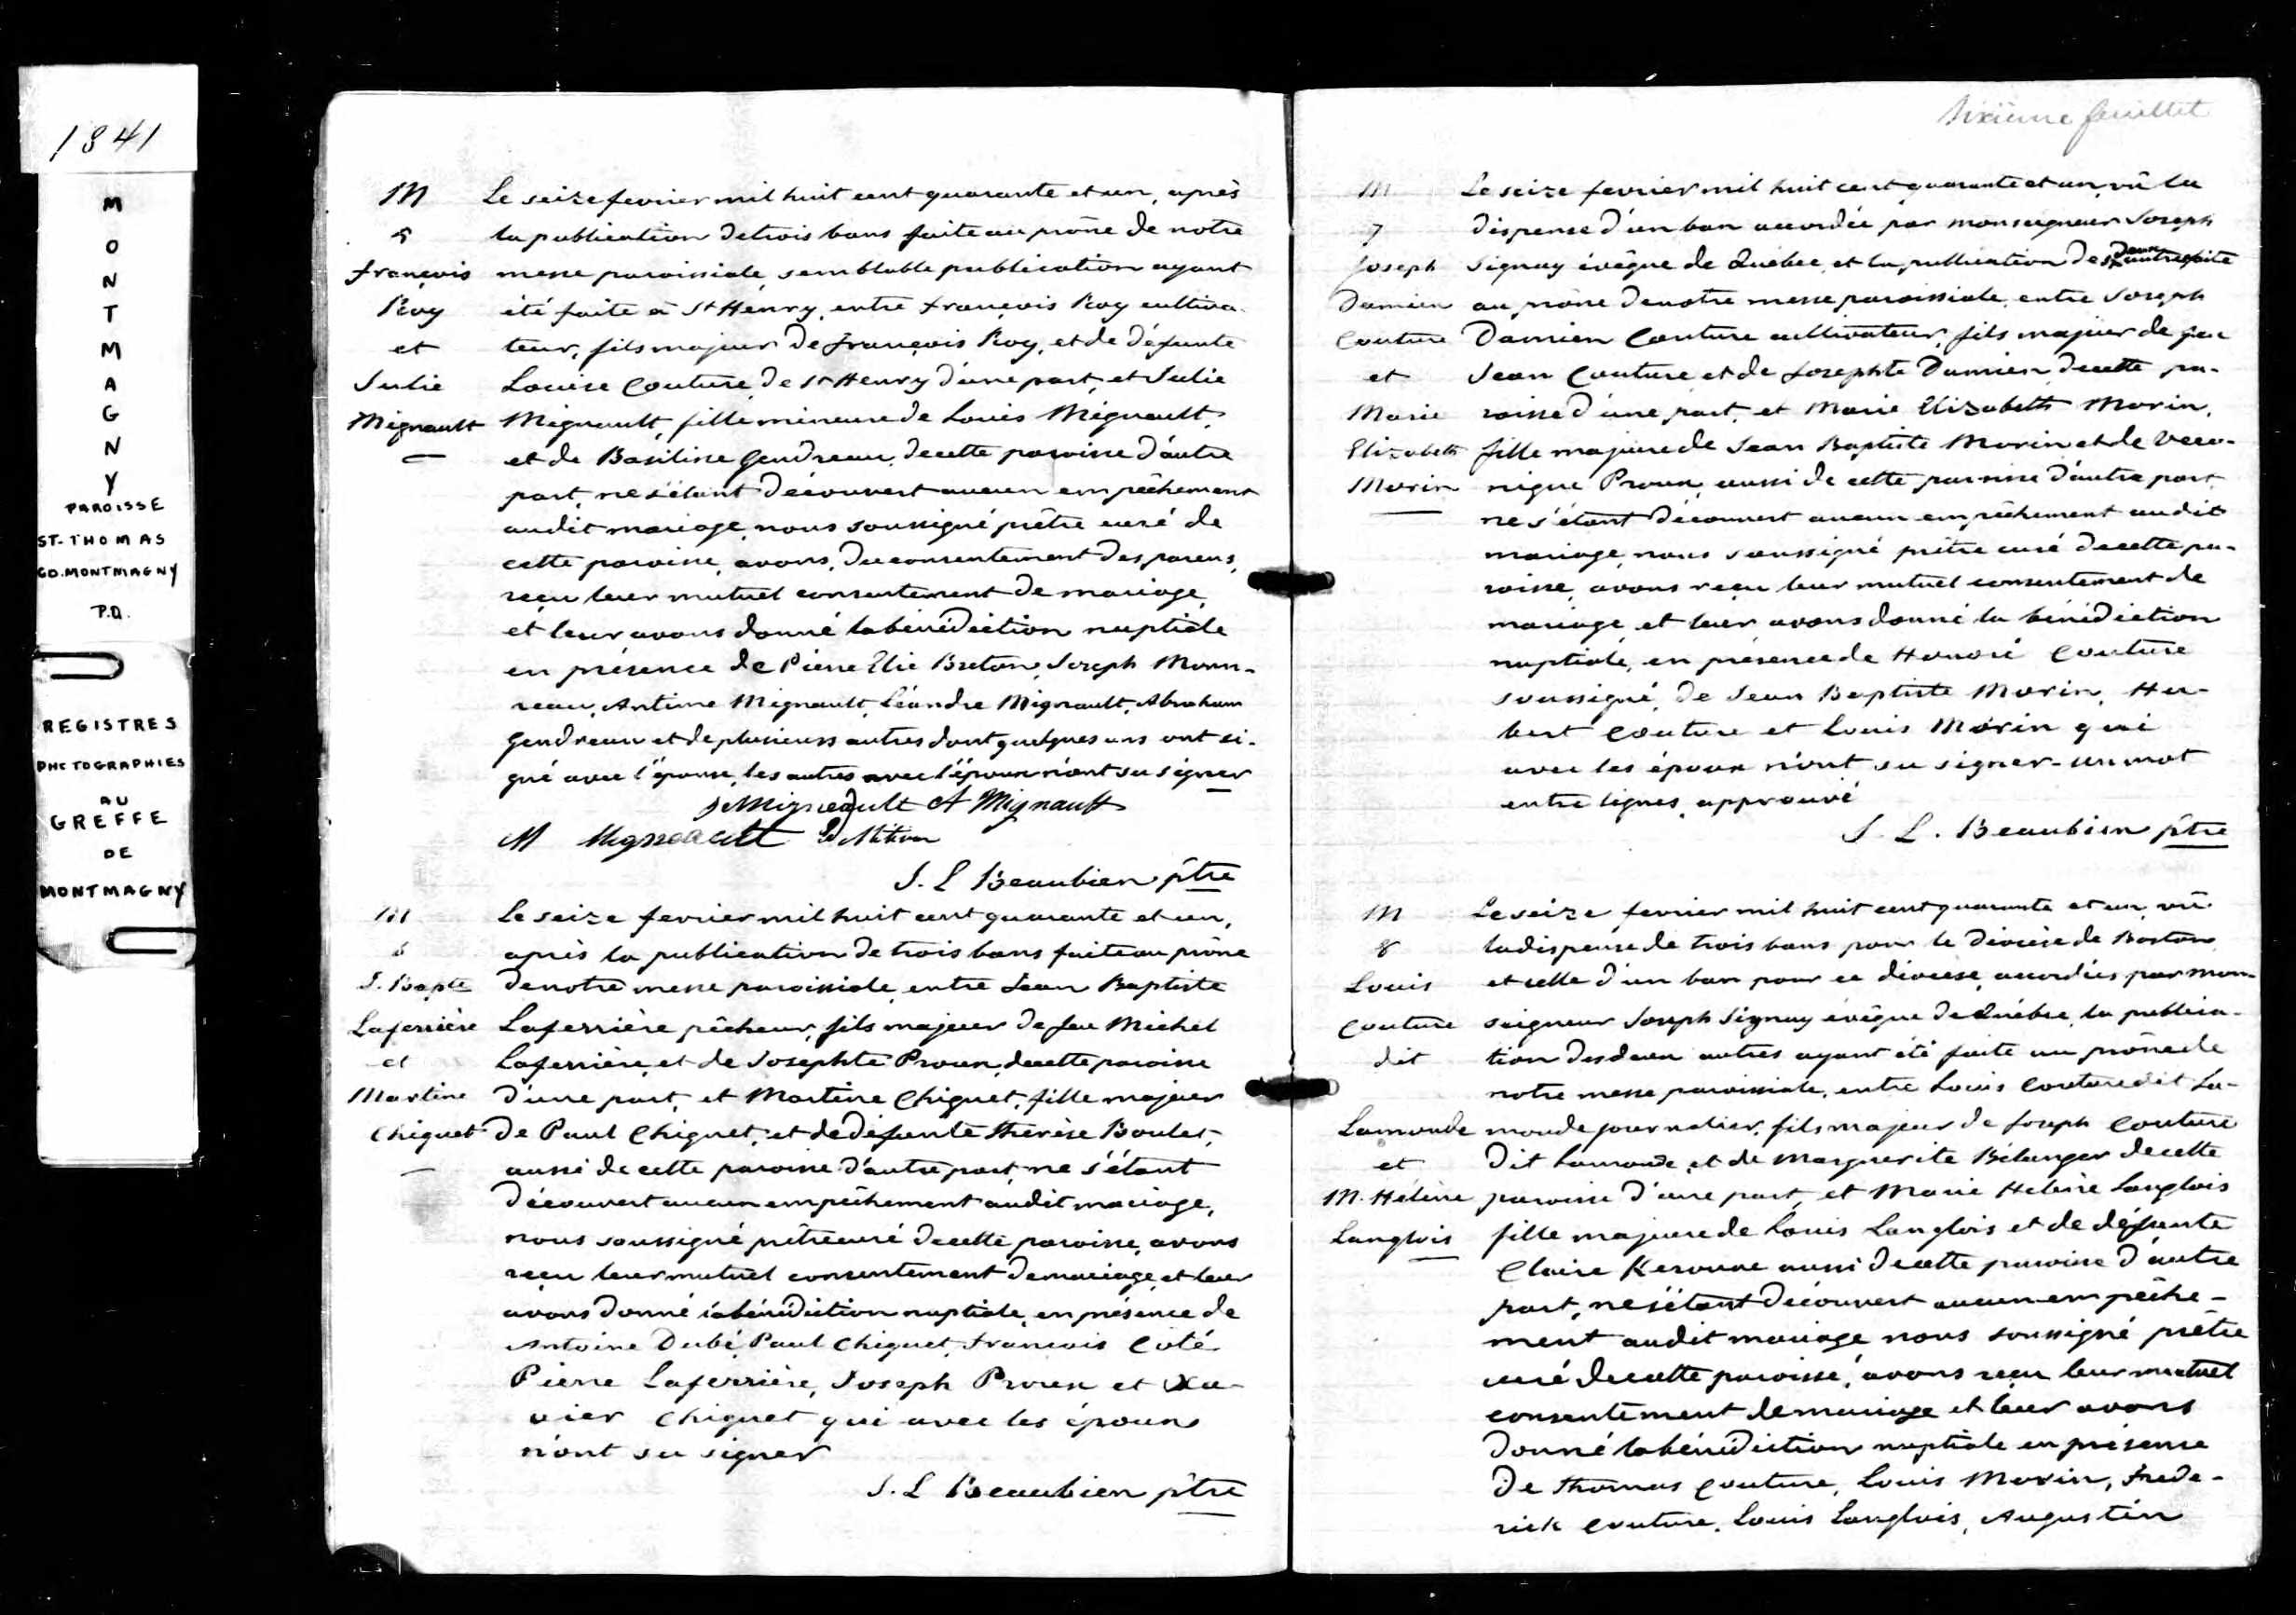 1841
M
O
N
T
M
A
G
N
Y
PAROISSE
ST-THOMAS
CO. MONTMAGNY
P.Q.
REGISTRES
PHOTOGRAPHIES
AU
GREFFE
DE
MONTMAGNY
M
5
François
Roy
et
Julie
Mignault
Le seize fevrier mil huit cent quarante et un, après
la publication de trois bans faite au prône de notre
messe paroissiale, semblable publication ayant
été faite à St Henry, entre François Roy cultiva-
teur, fils majeur de François Roy, et de défunte
Louise Couture, de St Henry d'une part, et Julie
Mignault, fille mineure de Louis Mignault,
et de Basilise Gendreau, de cette paroisse d'autre
part, ne s'étant découvert aucun empêchement
audit mariage, nous soussigné prêtre curé de
cette paroisse, avons, du consentement des parens,
reçu leur mutuel consentement de mariage,
et leur avons donné la bénédiction nuptiale
en présence de Pierre Elie Breton, Joseph Morin-
reau, Antime Mignault, Léandre Mignault, Abraham
Gendreau et de plusieurs autres dont quelques uns ont si-
gné avec l'épouse, les autres avec l'époux n'ont su signer
A Mignault
M Migneault
J. L Beaubien ptre
M
6
J. Bapte
Laferrière
et
Martine
Chiguet
Le seize fevrier mil huit cent quarante et un,
après la publication de trois bans faite au prône
de notre messe paroissiale, entre Jean Baptiste
Laferrière pêcheur, fils majeur de feu Michel
Laferrière, et de Josephte Proux, de cette paroisse
d'une part, et Martine Chiguet, fille majeur
de Paul Chiguet, et de défunte Therèse Boulet,
aussi de cette paroisse d'autre part, ne s'étant
découvert aucun empêchement audit mariage,
nous soussigné prêtre curé de cette paroisse, avons
reçu leur mutuel consentement de mariage, et leur
avons donné la bénédiction nuptiale, en présence de
Antoine Dubé, Paul Chiguet, François Coté
Pierre Laferrière, Joseph Proux et Xa-
vier Chiguet qui avec les époux
n'ont su signer
J. L Beaubien ptre
Sixième feuillet
M
7
Joseph
Damien
Couture
et
Marie
Elizabeth
Morin
Le seize fevrier mil huit cent quarante et un, vû la
dispense d'un ban accordée par monseigneur Joseph
Signay évêque de Québec, et la publication des deux autres faite
au prône de notre messe paroissiale, entre Joseph
Damien Couture cultivateur, fils majeur de feu
Jean Couture et de Josephte Damien, de cette pa-
roisse d'une part, et Marie Elizabeth Morin,
fille majeure de Jean Baptiste Morin et de Vero-
nique Proux, aussi de cette paroisse d'autre part
ne s'étant découvert aucun empêchement audit
mariage, nous soussigné prêtre curé de cette pa-
roisse, avons reçu leur mutuel consentement de
mariage, et leur avons donné la bénédiction
nuptiale, en présence de Honoré Couture
soussigné, de Jean Baptiste Morin, Hu-
bert Couture et Louis Morin qui
avec les époux n'ont su signer - un mot
entre lignes approuvé
J. L. Beaubien ptre
M
8
Louis
Couture
dit
Lamonde
et
M. Helène
Langlois
Le seize fevrier mil huit cent quarante et un, vû
la dispense de trois bans pour le diocèse de Boston
et celle d'un ban pour ce diocèse, accordées par mon-
seigneur Joseph Signay évêque de Québec, la publica-
tion des deux autres ayant été faite au prône de
notre messe paroissiale, entre Louis Couture dit La-
monde journalier, fils majeur de Joseph Couture
dit Lamonde, et de Marguerite Bélanger de cette
paroisse d'une part, et Marie Helène Langlois
fille majeure de Louis Langlois et de défunte
Claire Kerouac aussi de cette paroisse d'autre
part, ne s'étant découvert aucun empêche-
ment audit mariage nous soussigné prêtre
curé de cette paroisse, avons reçu leur mutuel
consentement de mariage et leur avons
donné la bénédiction nuptiale en présence
de Thomas Couture, Louis Morin, Frede-
rick Couture, Louis Langlois, Augustin